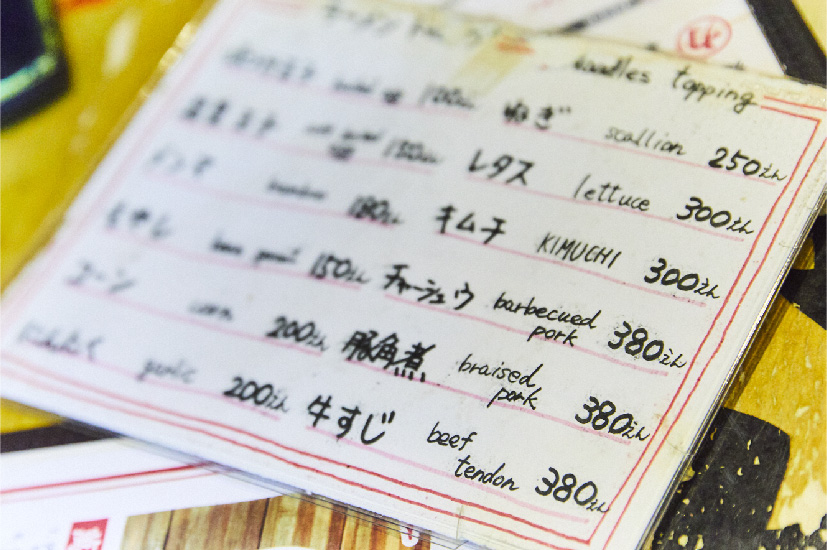 noodles topping
100えん ねぎ scallion 250えん
150えん レタス lettuce 300えん
メンマ 180えん キムチ KIMUCHI 300えん
もやし 150えん チャーシュウ barbecued pork 380えん
コーン corn 200えん 豚角煮 braised pork 380えん
にんにく garlic 200えん 牛すじ beef tendon 380えん